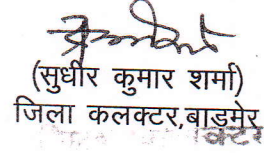 (सुधीर कुमार शर्मा)
जिला कलक्टर,बाड़मेर